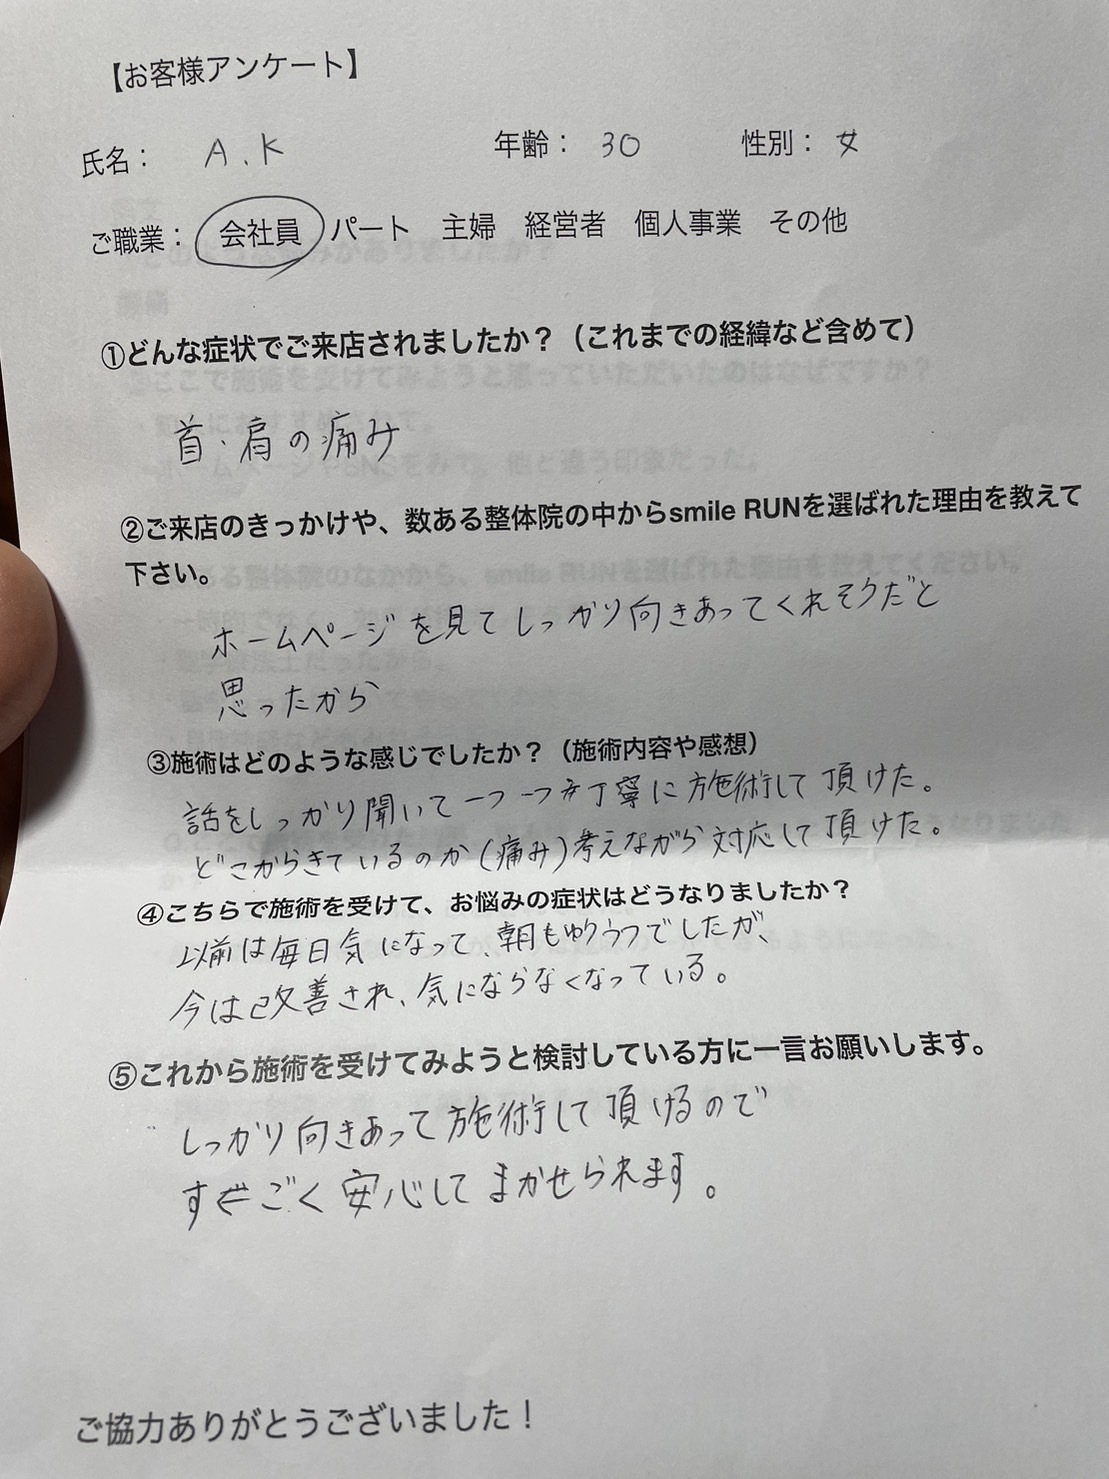 【お客様アンケート】
氏名： A.K 年齢： 30 性別： 女
ご職業： 会社員 パート 主婦 経営者 個人事業 その他
①どんな症状でご来店されましたか？（これまでの経緯など含めて）
首・肩の痛み
②ご来店のきっかけや、数ある整体院の中からsmile RUNを選ばれた理由を教えて
下さい。
ホームページを見てしっかり向きあってくれそうだと
思ったから
③施術はどのような感じでしたか？（施術内容や感想）
話をしっかり聞いて一つ一つ丁寧に施術して頂けた。
どこからきているのか(痛み)考えながら対応して頂けた。
④こちらで施術を受けて、お悩みの症状はどうなりましたか？
以前は毎日気になって、朝もゆううつでしたが、
今は改善され、気にならなくなっている。
⑤これから施術を受けてみようと検討している方に一言お願いします。
しっかり向きあって施術して頂けるので
すごく安心してまかせられます。
ご協力ありがとうございました！